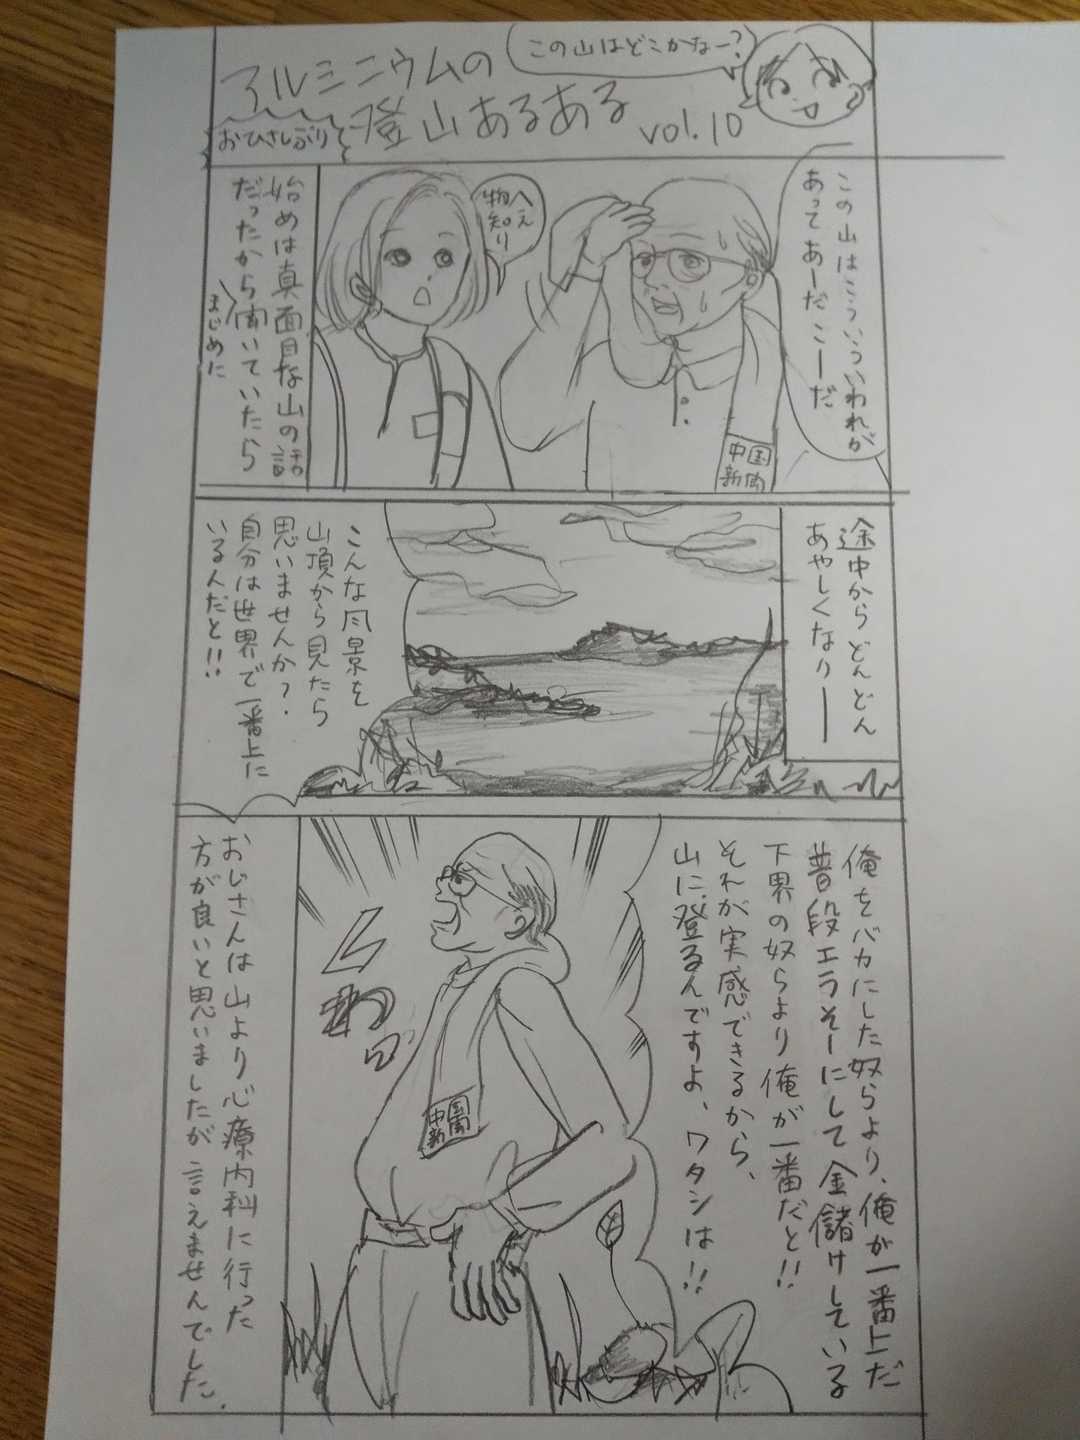 アルミニウムの
おひさしぶりと
登山あるある
vol.10
この山はどこかなー?
この山はこういういわれが
あってあーだこーだ
へえ
物知り
中国
新聞
始めは真面目な山の話
だったから聞いていたら
まじめに
途中からどんどん
あやしくなりー
こんな風景を
山頂から見たら
思いませんか?
自分は世界で一番上に
いる人だと!!
俺をバカにした奴らより、俺が一番上だ
普段エラそーにして金儲けしている
下界の奴らより俺が一番だと!!
それが実感できるから、
山に登るんですよ、ワタシは!!
くわっ
中国
新聞
おじさんは山より心療内科に行った
方が良いと思いましたが言えませんでした。